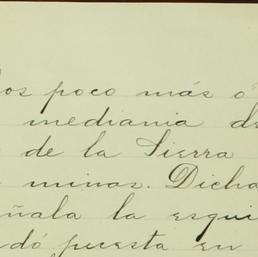 los poco más ó
mediania de
de la Sierra
minas. Dicha
ñala la esqui
dó puesta en